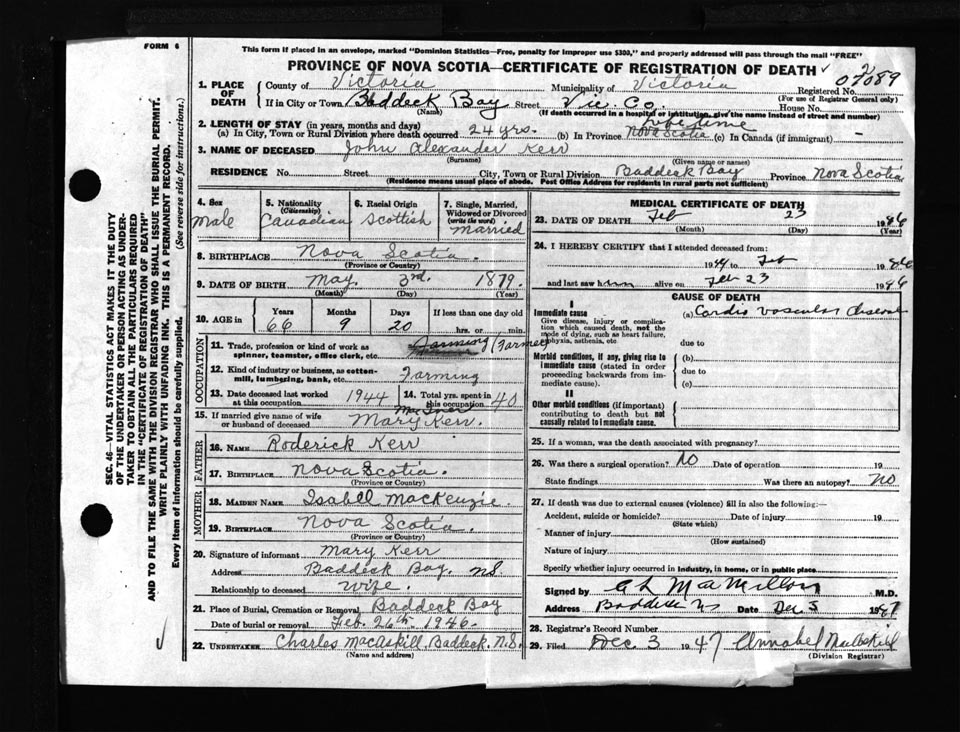 FORM 6
This form if placed in an envelope, marked "Dominion Statistics—Free, penalty for improper use $300," and properly addressed will pass through the mail "FREE"
PROVINCE OF NOVA SCOTIA—CERTIFICATE OF REGISTRATION OF DEATH
1. PLACE OF DEATH
County of Victoria Municipality of Victoria Registered No.
(For use of Registrar General only)
If in City or Town Baddeck Bay Street Vic. Co. House No.
(Name) (If death occurred in a hospital or institution, give the name instead of street and number)
2. LENGTH OF STAY (in years, months and days)
(a) In City, Town or Rural Division where death occurred 24 yrs. (b) In Province life time Nova Scotia (c) In Canada (if immigrant)
3. NAME OF DECEASED John Alexander Kerr
(Surname) (Given name or names)
RESIDENCE No. Street City, Town or Rural Division Baddeck Bay Province Nova Scotia
(Residence means usual place of abode. Post Office Address for residents in rural parts not sufficient)
4. Sex Male
5. Nationality (Citizenship) Canadian
6. Racial Origin Scottish
7. Single, Married, Widowed or Divorced (write the word) married
8. BIRTHPLACE Nova Scotia.
(Province or Country)
9. DATE OF BIRTH May 3rd. 1879.
(Month) (Day) (Year)
10. AGE in Years 66 Months 9 Days 20 If less than one day
hrs. or min.
OCCUPATION
11. Trade, profession or kind of work as spinner, teamster, office clerk, etc. Farming (Farmer
12. Kind of industry or business, as cotton-mill, lumbering, bank, etc. Farming
13. Date deceased last worked at this occupation 1944 14. Total yrs. spent in this occupation 40
15. If married give name of wife or husband of deceased Mary Kerr.
FATHER
16. NAME Roderick Kerr
17. BIRTHPLACE Nova Scotia.
(Province or Country)
MOTHER
18. MAIDEN NAME Isabell MacKenzie.
19. BIRTHPLACE Nova Scotia.
(Province or Country)
20. Signature of informant Mary Kerr
Address Baddeck Bay. NS
Relationship to deceased Wife.
21. Place of Burial, Cremation or Removal Baddeck Bay
Date of burial or removal Feb. 26th 1946.
22. UNDERTAKER Charles MacAskill, Baddeck. N.S.
(Name and address)
MEDICAL CERTIFICATE OF DEATH
23. DATE OF DEATH Feb 23 1946
(Month) (Day) (Year)
24. I HEREBY CERTIFY that I attended deceased from:
1944 to Feb 1946
and last saw him alive on Feb 23 1946
CAUSE OF DEATH
I
Immediate cause
Give disease, injury or complication which caused death, not the mode of dying, such as heart failure, asphyxia, asthenia, etc
(a) Cardio vascular disease
due to
Morbid conditions, if any, giving rise to immediate cause (stated in order proceeding backwards from immediate cause).
(b)
due to
(c)
II
Other morbid conditions (if important) contributing to death but not causally related to immediate cause.
25. If a woman, was the death associated with pregnancy?
26. Was there a surgical operation? No Date of operation 19
State findings Was there an autopsy? No
27. If death was due to external causes (violence) fill in also the following:—
Accident, suicide or homicide? Date of injury 19
(State which)
Manner of injury
(How sustained)
Nature of injury
Specify whether injury occurred in industry, in home, or in public place
Signed by M.D.
Address Baddeck NS Date Dec 5 1947
28. Registrar's Record Number
29. Filed Dec. 3 1947 Annabel MacAskill
(Division Registrar)
SEC. 46—VITAL STATISTICS ACT MAKES IT THE DUTY
OF THE UNDERTAKER OR PERSON ACTING AS UNDER-
TAKER TO OBTAIN ALL THE PARTICULARS REQUIRED
IN THE "CERTIFICATE OF REGISTRATION OF DEATH"
AND TO FILE THE SAME WITH THE DIVISION REGISTRAR WHO SHALL ISSUE THE BURIAL PERMIT.
WRITE PLAINLY WITH UNFADING INK. THIS IS A PERMANENT RECORD.
Every item of information should be carefully supplied. (See reverse side for instructions.)